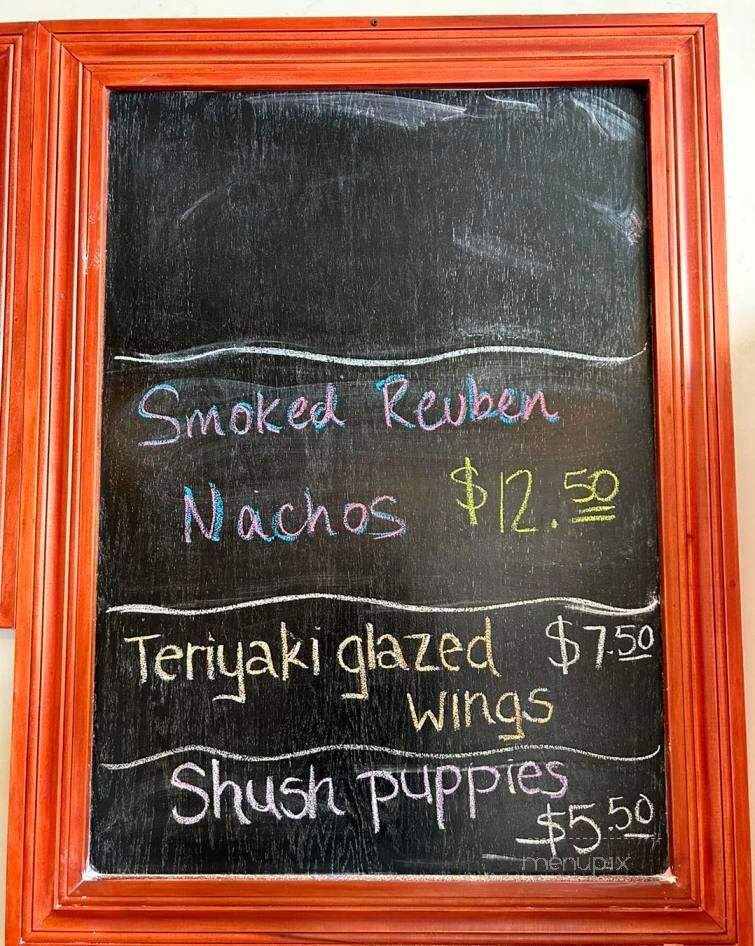 Smoked Reuben
Nachos $12.50
Teriyaki glazed $7.50
wings
Shush puppies
$5.50
menupix